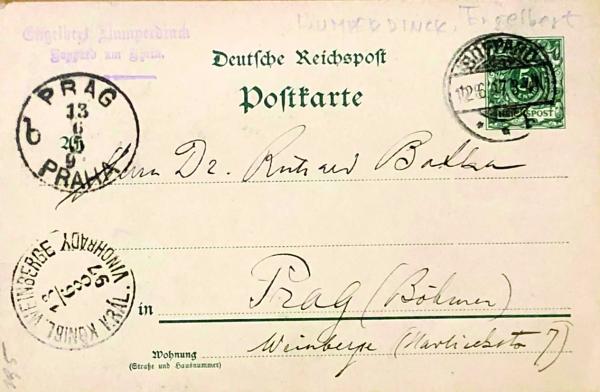 HUMPERDINCK, Engelbert
Engelbert Humperdinck
Boppard am Rhein.
Deutsche Reichspost
Postkarte
BOPPARD
12 6 97
5
REICHSPOST
PRAG
13
6
9
PRAHA
Herrn Dr. Richard Batka
KÖNIGL. WEINBERGE
VINOHRADY
13
6
97
in Prag (Böhmen)
Weinberge
7)
Wohnung
(Straße und Hausnummer)
195